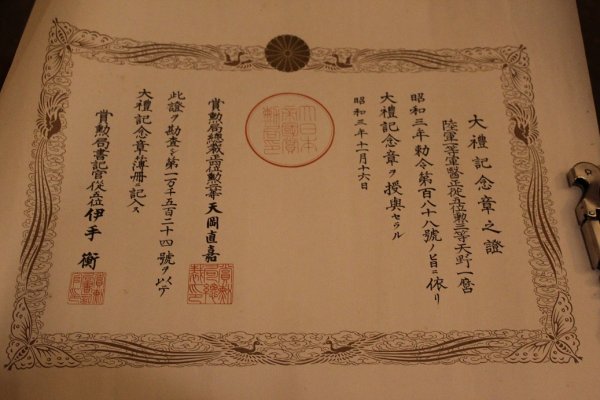 大禮記念章之證
陸軍一等軍醫正從五位勲三等天野一麿
昭和三年勅令第百八十八號ノ旨ニ依リ
大禮記念章ヲ授與セラル
昭和三年十一月十六日
大日本
賞勲局總裁正四位勲二等天岡直嘉
此證ヲ勘査シ第一万千五百二十四號ヲ以テ
大禮記念章簿册ニ記入ス
賞勲局書記官從五位伊手衡